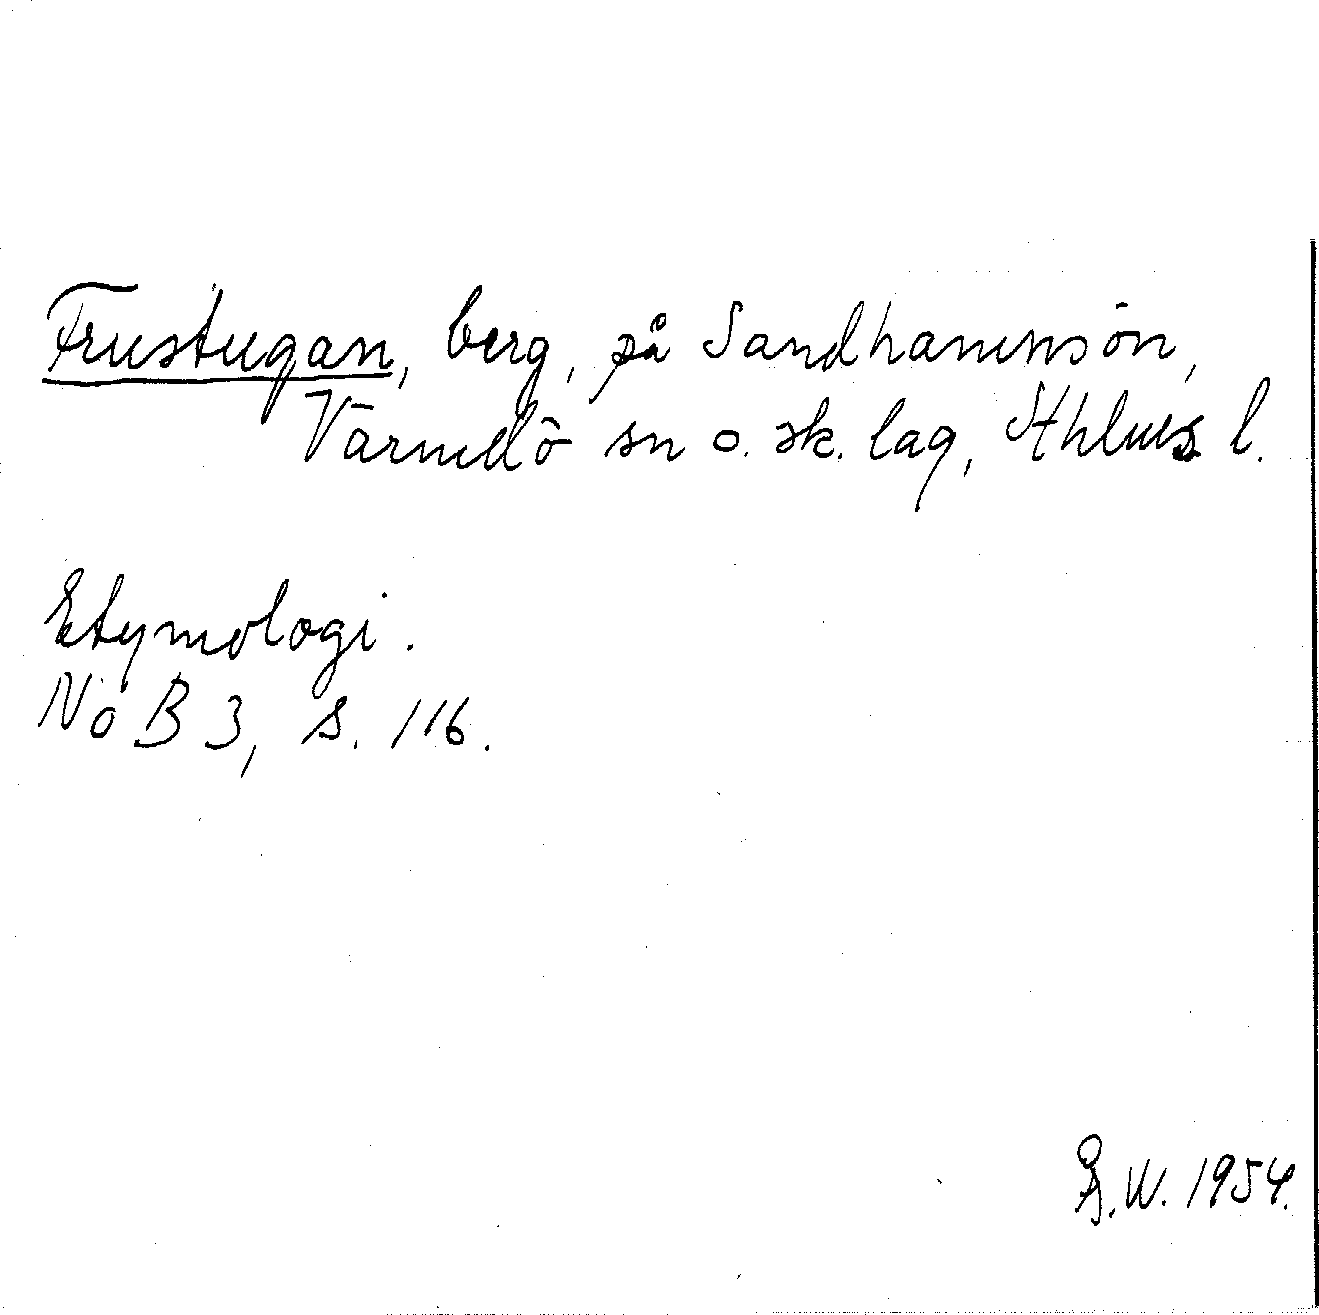 Frustugan, berg, på Sandhamnsön,
Värmdö sn o. sk. lag, Sthlms l.
Etymologi.
NoB 3, s. 116.
Å.W. 1954.